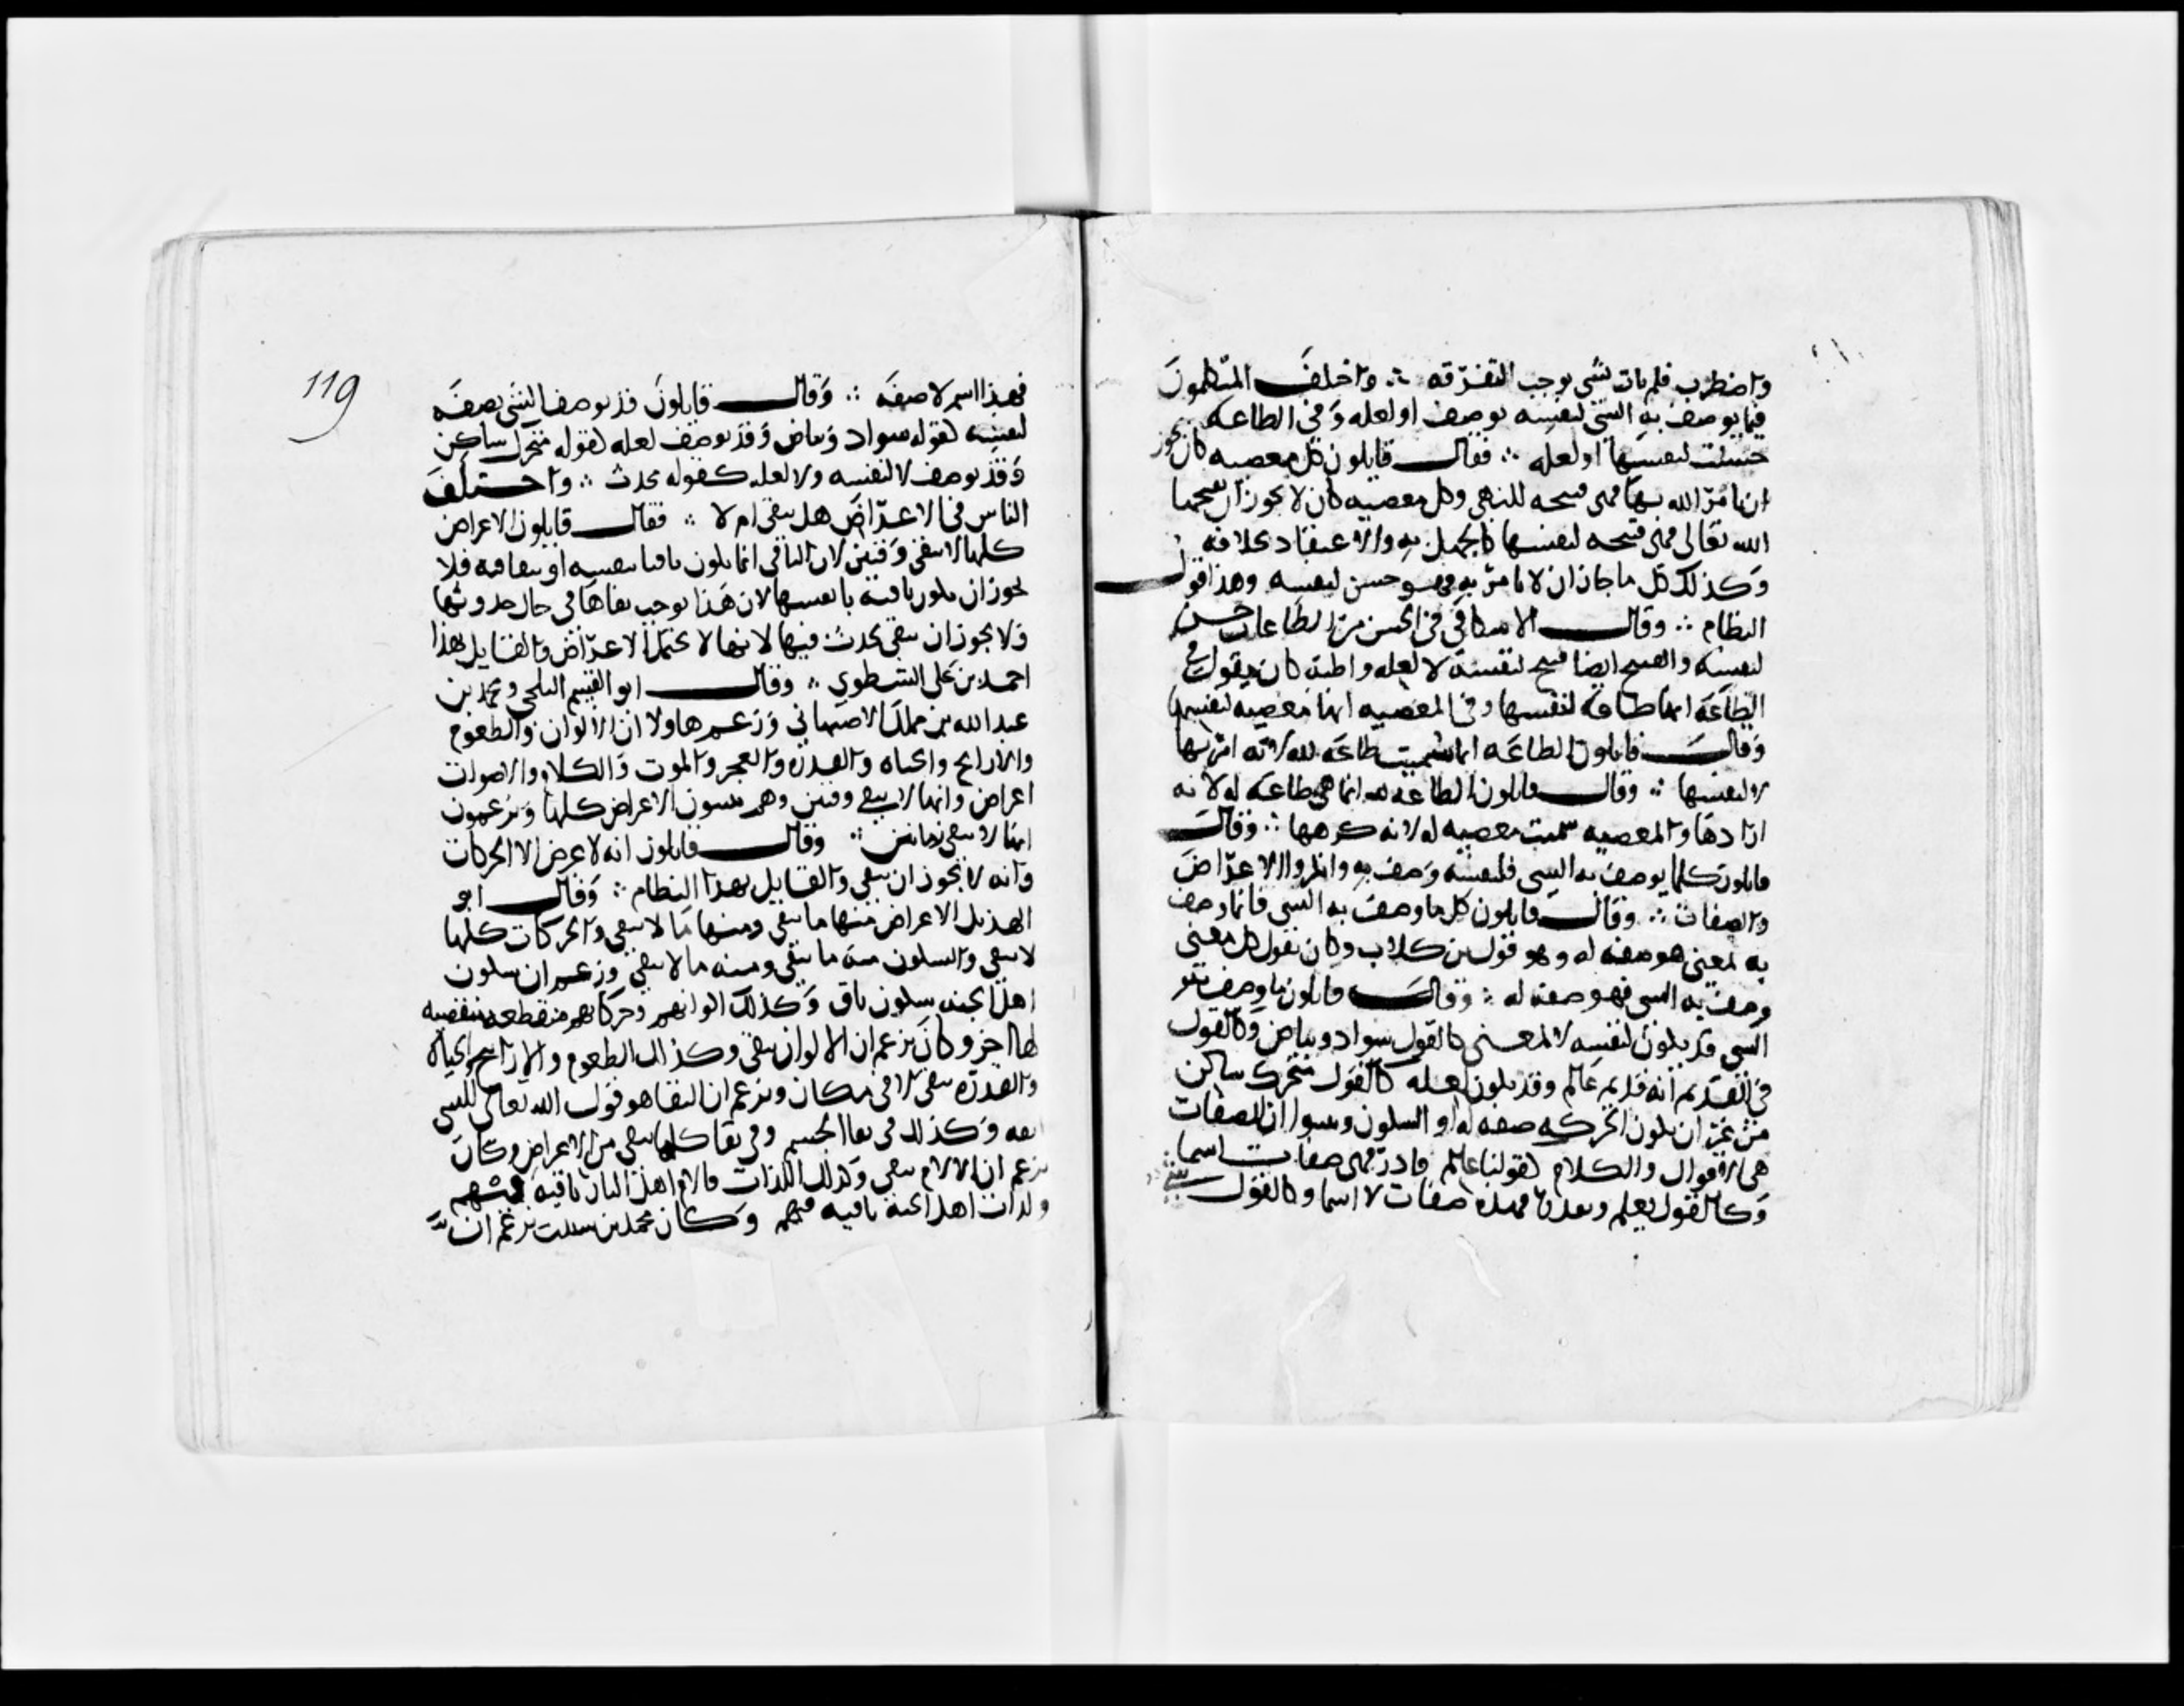 واضطرب فلم يات بشى يوجب التفرقه ∴ واختلف المتكلمون
فيما يوصف به الشى لنفسه يوصف او لعله وفى الطاعه
حسنت لنفسها او لعله ∴ فقال قايلون كل معصيه كان يجوز
ان يامر الله بها فهى قبيحه للنهى وكل معصيه كان لا يجوز ان يبيحها
الله تعالى فهى قبيحه لنفسها كالجهل به والاعتقاد بخلافه
وكذلك كل ما جاز ان لا يامر به فهو حسن لنفسه وهذا قول
النظام ∴ وقال الاسكافى فى الحسن من الطاعات حسن
لنفسه والقبيح ايضا قبيح لنفسه لا لعله واظنه كان يقول فى
الطاعه انها طاعة لنفسها وفى المعصيه انها معصيه لنفسها
وقال قايلون الطاعه انما سميت طاعه لله لانه امر بها
لا لنفسها ∴ وقال قايلون الطاعه لله انما هى طاعه له لانه
ارادها والمعصيه سميت معصيه له لانه كرهها ∴ وقال
قايلون كلما يوصف به الشى فلنفسه وصف به وانكروا الاعراض
والصفات ∴ وقال قايلون كل ما وصف به الشى فانما وصف
به لمعنى هو صفه له وهو قول بن كلاب وكان يقول كل معنى
وصف به الشى فهو صفه له ∴ وقال قايلون ما وصف به
الشى قد يكون لنفسه لا لمعنى كالقول سواد وبياض وكالقول
فى القديم انه قديم عالم وقد يكون لعله كالقول متحرك ساكن
من غير ان يكون الحركه صفه له او السكون وثبتوا ان الصفات
هى الاقوال والكلام كقولنا عالم قادر فهى صفات اسما
وكالقول يعلم ويقدر فهذه صفات لا اسما وكالقول شى
119
فهذا اسم لا صفه ∴ وقال قايلون قد يوصف الشى بصفه
لنفسه كقوله سواد وبياض وقد يوصف لعله كقوله متحرك ساكن
وقد يوصف لا لنفسه ولا لعله كقوله محدث ∴ واختلف
الناس فى الاعراض هل تبقى ام لا ∴ فقال قايلون الاعراض
كلها لا تبقى وقتين لان الباقى انما يكون باقيا بنفسه او ببقا فيه فلا
يجوز ان يكون باقية بانفسها لان هذا يوجب بقاها فى حال حدوثها
ولا يجوز ان تبقى ببقا يحدث فيها لانها لا تحتمل الاعراض والقايل بهذا
احمد بن على الشطوى ∴ وقال ابو القسم البلخى ومحمد بن
عبد الله بن مملك الاصبهانى وزعم هاولا ان الالوان والطعوم
والارايح والحياه والقدره والعجز والموت والكلام والاصوات
اعراض وانها لا تبقى وقتين وهم يثبتون الاعراض كلها ويزعمون
انها لا تبقى زمانين ∴ وقال قايلون انه لا عرض الا الحركات
وانه لا يجوز ان تبقى والقايل بهذا النظام ∴ وقال ابو
الهذيل الاعراض منها ما تبقى ومنها ما لا تبقى والحركات كلها
لا تبقى والسكون منه ما يبقى ومنه ما لا يبقى وزعم ان سكون
اهل الجنه سكون باق وكذلك الوانهم وحركاتهم منقطعه منقضيه
لها اخر وكان يزعم ان الالوان تبقى وكذلك الطعوم والاراييح والحياه
والقدره تبقى لا فى مكان ويزعم ان البقا هو قول الله تعالى للشى
ابقه وكذلك فى بقا الجسم وفى بقا كلما يبقى من الاعراض وكان
يزعم ان الالام تبقى وكذلك اللذات فالام اهل النار باقيه فيهم
ولذات اهل الجنه باقيه فيهم وكان محمد بن شبيب يزعم ان